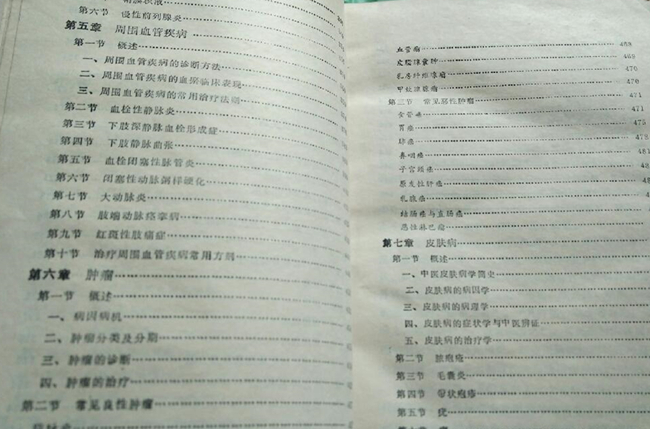 第六节 慢性前列腺炎
第五章 周围血管疾病
第一节 概述
一、周围血管疾病的诊断方法
二、周围血管疾病的血瘀临床表现
三、周围血管疾病的常用治疗法则
第二节 血栓性静脉炎
第三节 下肢深静脉血栓形成症
第四节 下肢静脉曲张
第五节 血栓闭塞性脉管炎
第六节 闭塞性动脉粥样硬化
第七节 大动脉炎
第八节 肢端动脉痉挛病
第九节 红斑性肢痛症
第十节 治疗周围血管疾病常用方剂
第六章 肿瘤
第一节 概述
一、病因病机
二、肿瘤分类及分期
三、肿瘤的诊断
四、肿瘤的治疗
第二节 常见良性肿瘤
血管瘤 469
皮脂腺囊肿 469
乳房纤维腺瘤 470
甲状腺腺瘤 470
第三节 常见恶性肿瘤 471
食管癌 471
胃癌 473
肺癌
鼻咽癌
子宫颈癌
原发性肝癌
乳腺癌
结肠癌与直肠癌
恶性淋巴瘤
第七章 皮肤病
第一节 概述
一、中医皮肤病学简史
二、皮肤病的病因学
三、皮肤病的病理学
四、皮肤病的症状学与中医辨证
五、皮肤病的治疗学
第二节 脓疱疮
第三节 毛囊炎
第四节 带状疱疹
第五节 疣